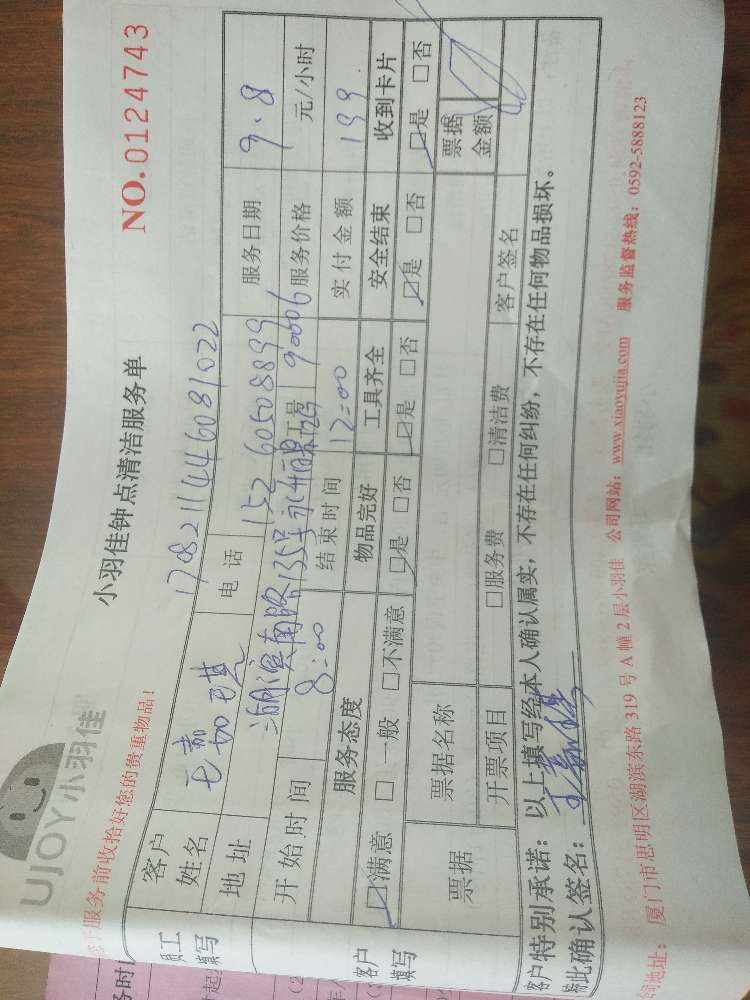 UJOY小羽佳
小羽佳钟点清洁服务单
NO.0124743
服务前收拾好您的贵重物品！
1708211446081022
员工填写
客户姓名
电话 15260508899
服务日期 9.8
地址 湖滨南路135号
工号 90006
服务价格 元/小时
开始时间 8:00
结束时间 12:00
实付金额 199.
客户填写
服务态度
物品完好
工具齐全
安全结束
收到卡片
☑满意 □一般 □不满意
☑是 □否
☑是 □否
☑是 □否
☑是 □否
票据
票据名称
票据金额
开票项目
□服务费 □清洁费
客户签名
客户特别承诺：以上填写经本人确认属实，不存在任何纠纷，不存在任何物品损坏。
特此确认签名：
公司地址：厦门市思明区湖滨东路319号A幢2层小羽佳 公司网站：www.xiaoyujia.com 服务监督热线：0592-5888123
务时